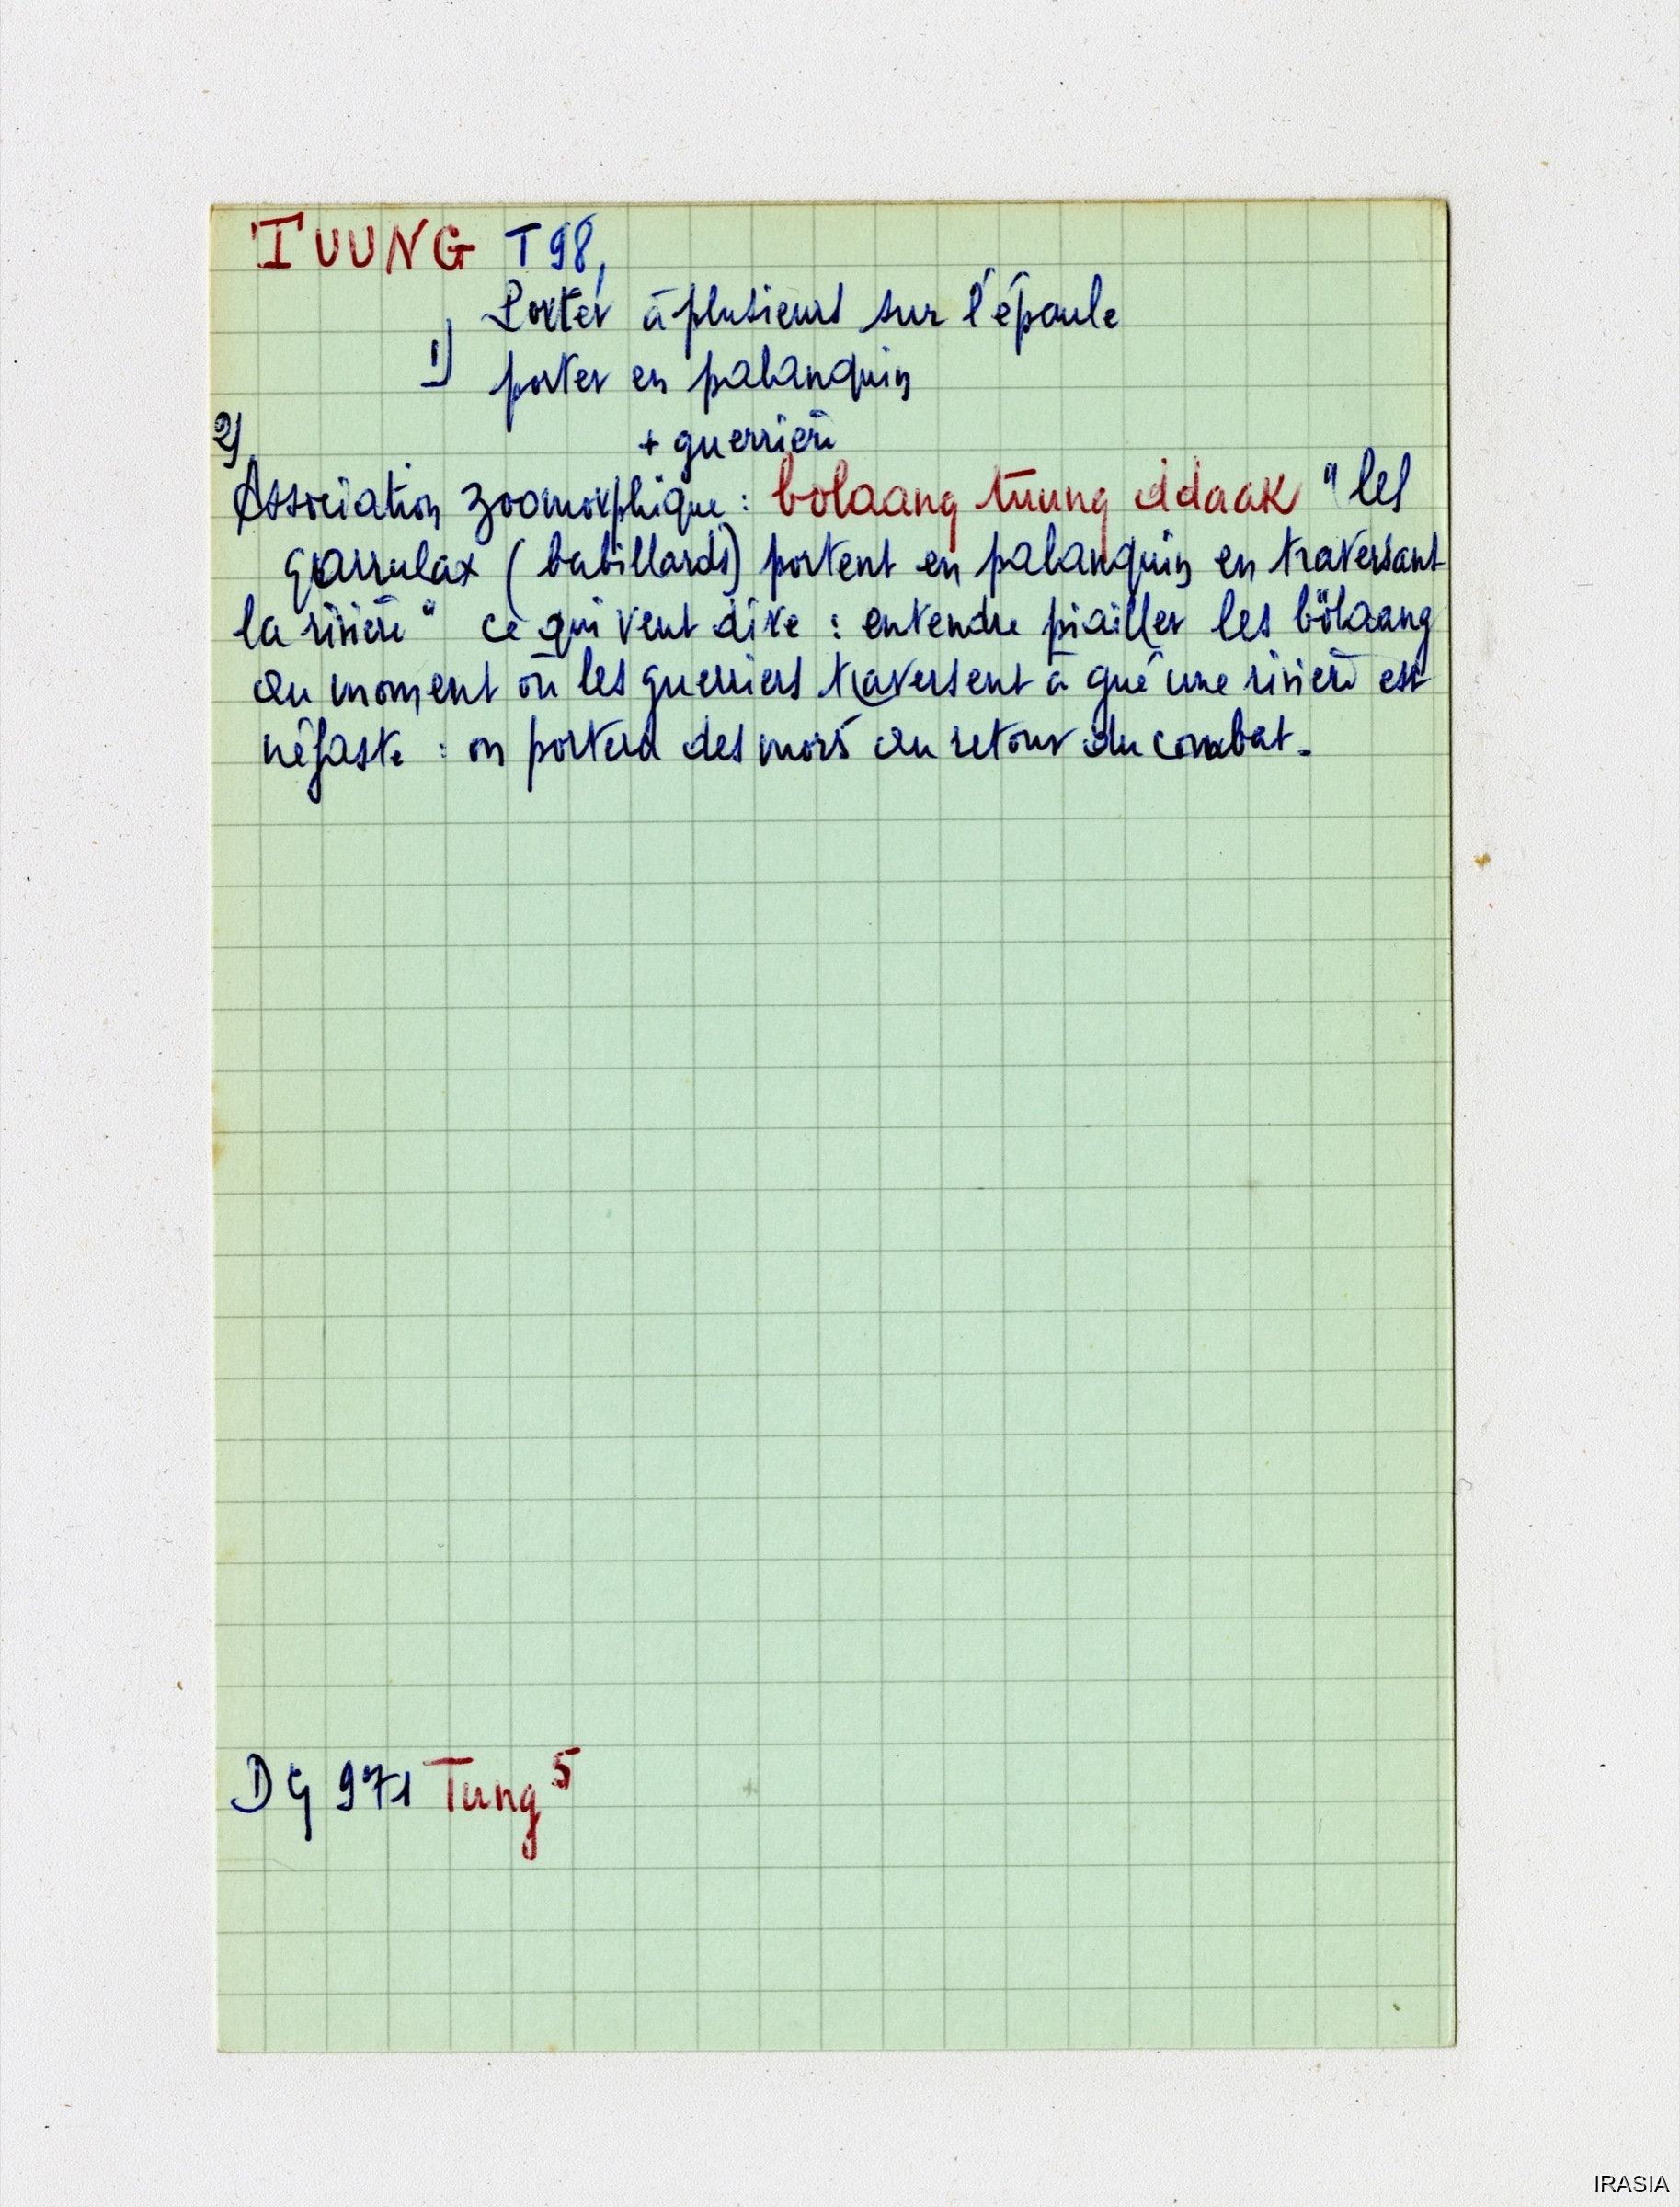 TUUNG T 98,
Porter à plusieurs sur l'épaule
1) porter en palanquin
2)
+ guerrière
Association zoomorphique : bolaang tuung ddaak "les
garrulax (babillards) portent en palanquin en traversant
la rivière" ce qui veut dire : entendre piailler les bölaang
au moment où les guerriers traversent à gué une rivière est
néfaste : on portera des mors au retour du combat.
DG 971 Tung 5
IRASIA